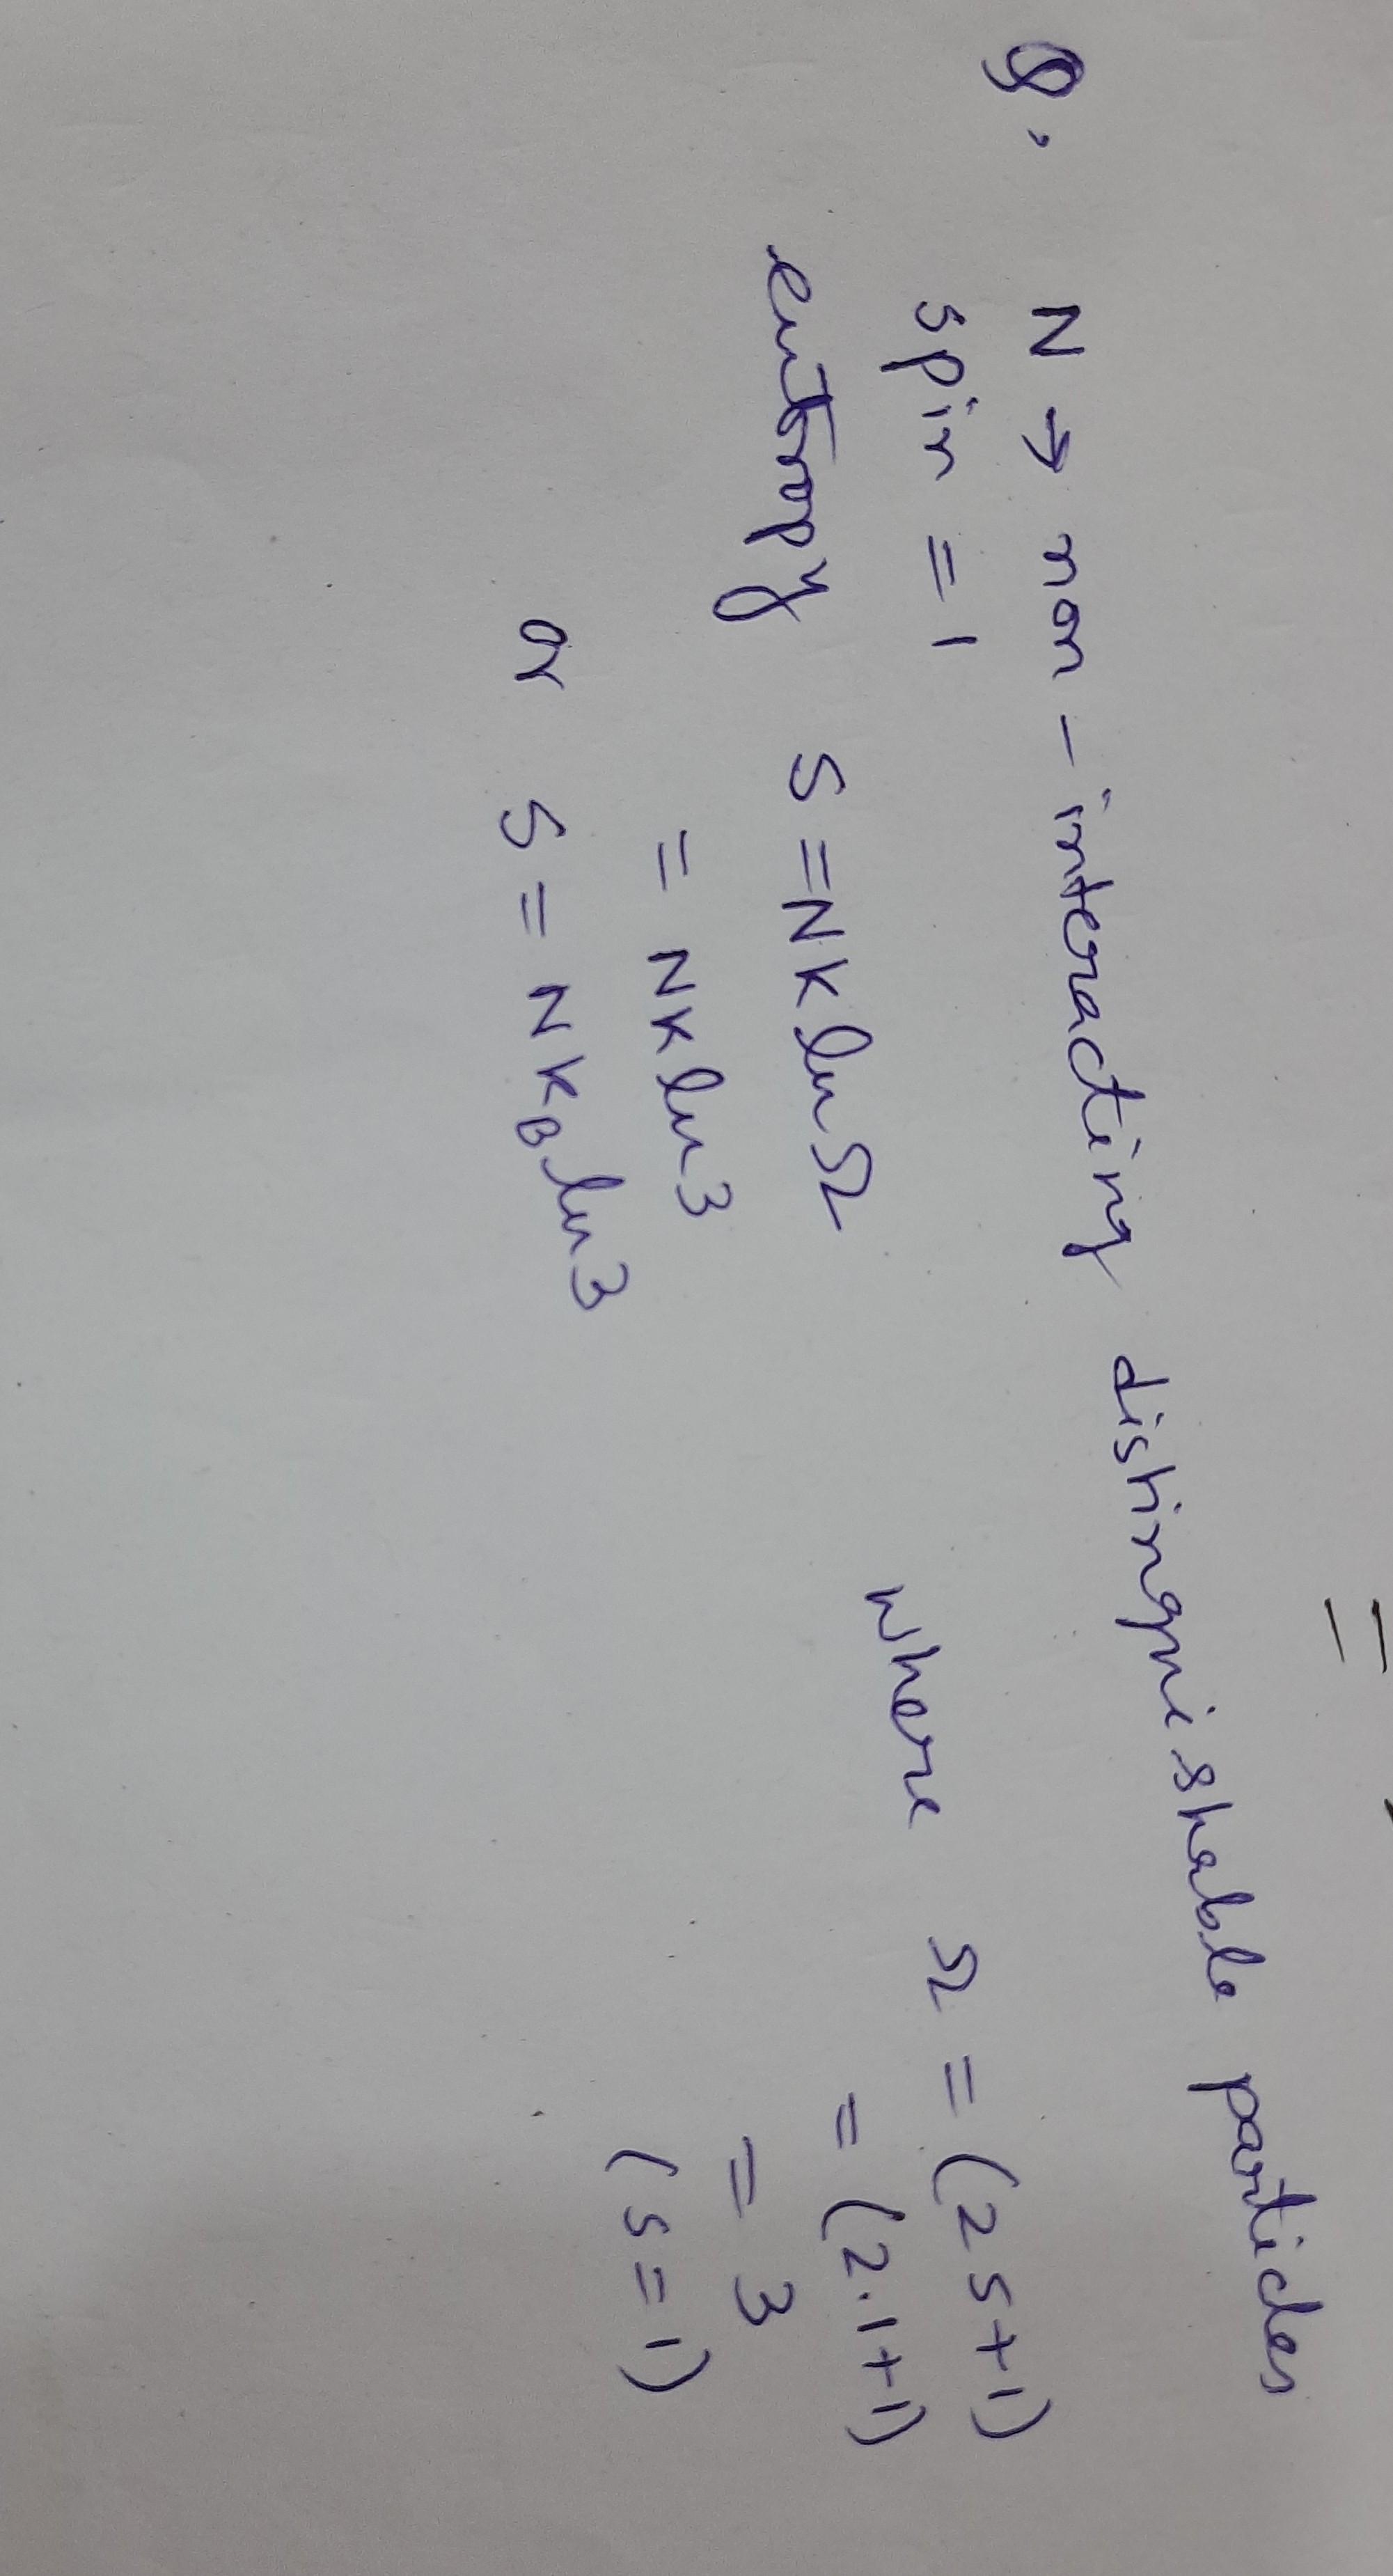 =
Q. N → non-interacting distinguishable particles
spin = 1
entropy S = NK ln Ω where Ω = (2s+1)
= NK ln 3 = (2.1+1)
or S = NK_B ln 3 = 3
(s=1)